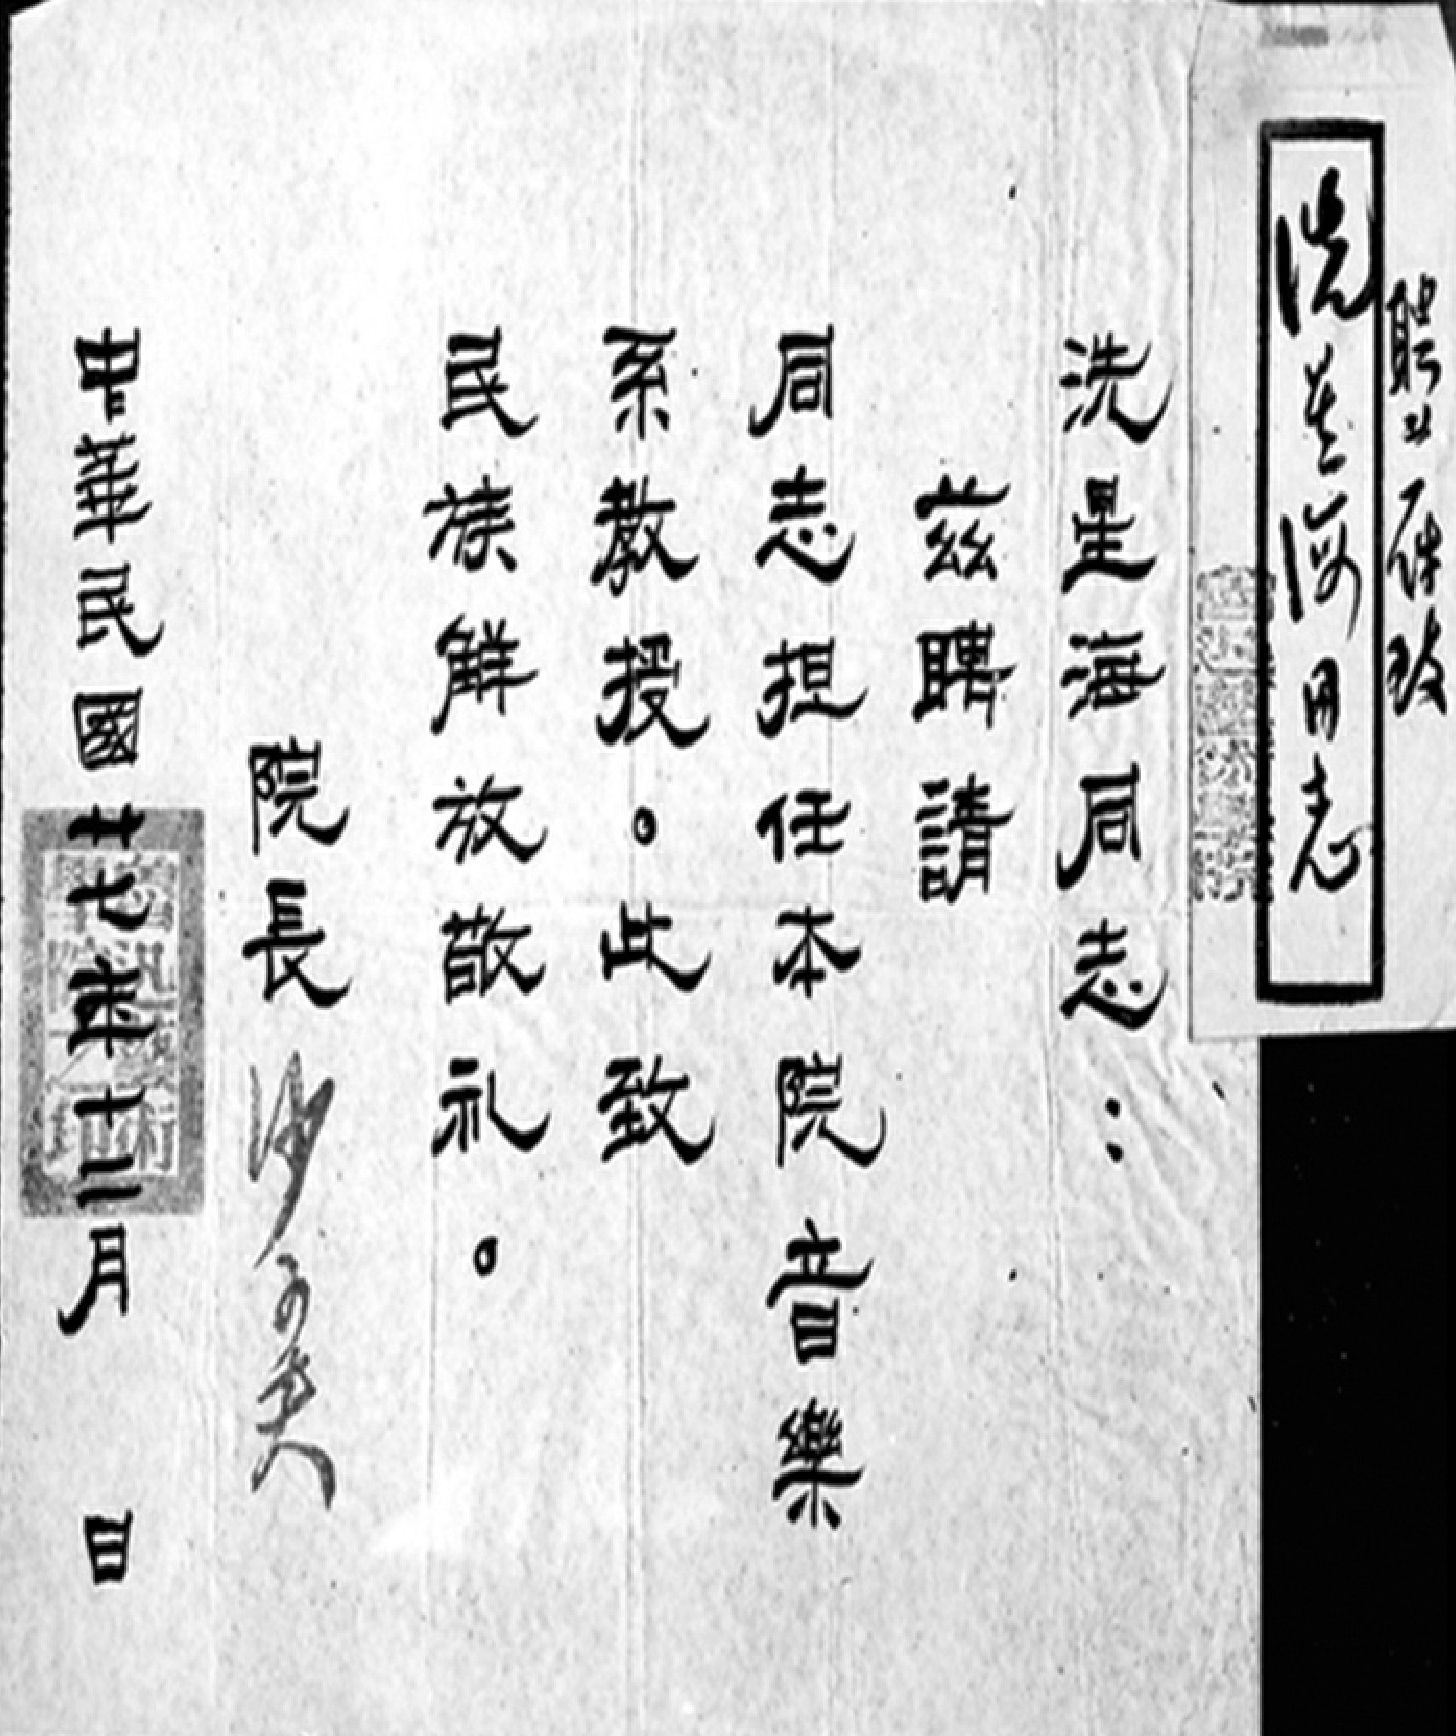 聘书一件致
洗星海同志
洗星海同志：
茲聘請
同志担任本院音樂
系教授。此致
民族解放敬礼。
院長 沙可夫
中華民國廿七年十二月 日